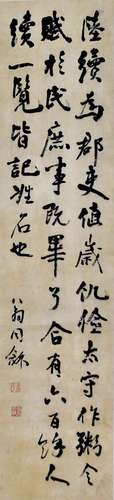 陸續為郡吏值歲飢儉太守作粥令
賦於民庶事既畢合有六百餘人
續一覽皆記姓名也
翁同龢